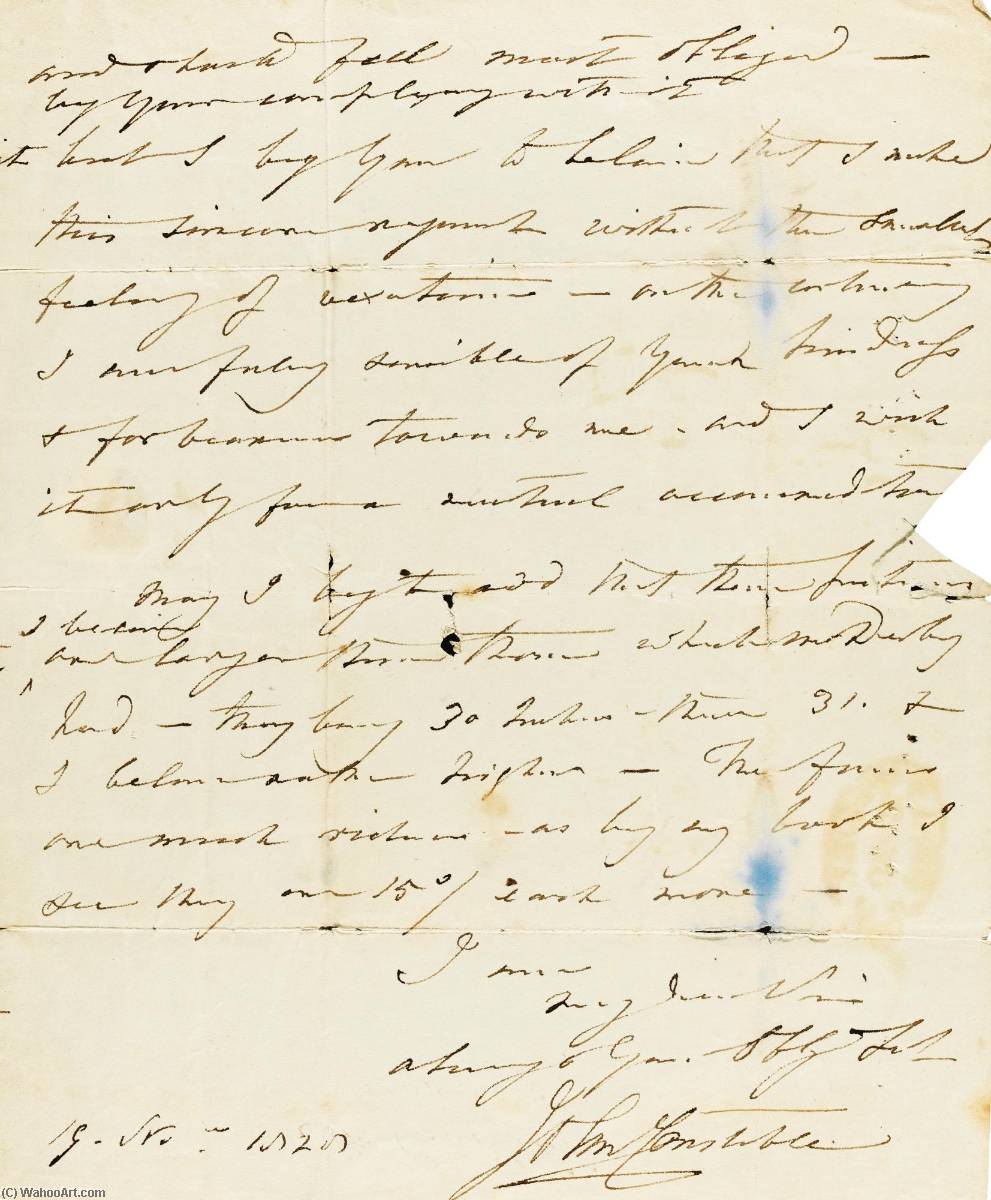 and should feel most obliged —
by your complying with it
but I beg you to believe that I make
this sincere request without the smallest
feeling of vexation — on the contrary
I am fully sensible of your kindness
& forbearance towards me – and I wish
it only for a mutual accommodation
May I beg to add that these pictures
I believe
are larger than those which Mr Derby
had — they being 30 Inches – these 31. &
I believe rather higher — The frames
are much richer – as by my book I
see they are 15/ each more —
I am
my dear Sir
always your Oblgd Sert
John Constable
19. Nov 1828
(C) WahooArt.com